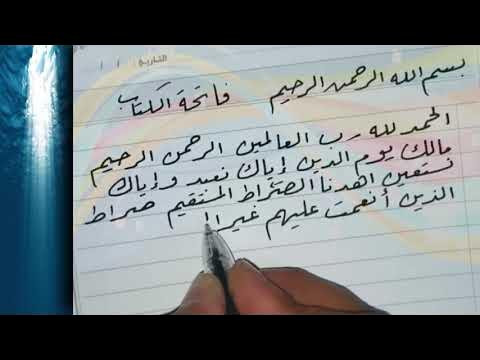 التاريخ / /
بسم الله الرحمن الرحيم فاتحة الكتاب
الحمد لله رب العالمين الرحمن الرحيم
مالك يوم الدين إياك نعبد وإياك
نستعين اهدنا الصراط المستقيم صراط
الذين أنعمت عليهم غير ا